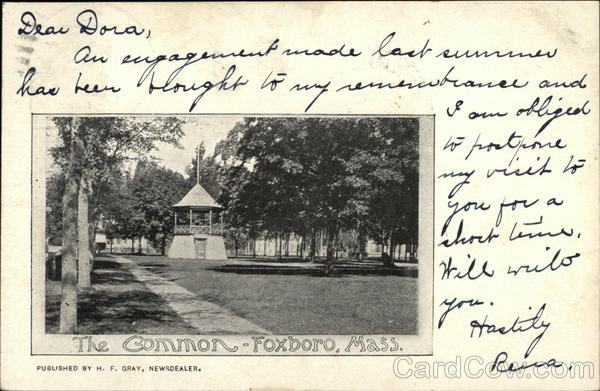 Dear Dora,
An engagement made last summer
has been brought to my remembrance and
I am obliged
to postpone
my visit to
you for a
short time.
Will write
you.
Hastily
Rena.
The Common - Foxboro, Mass.
PUBLISHED BY H. F. GRAY, NEWSDEALER.
CardCow.com